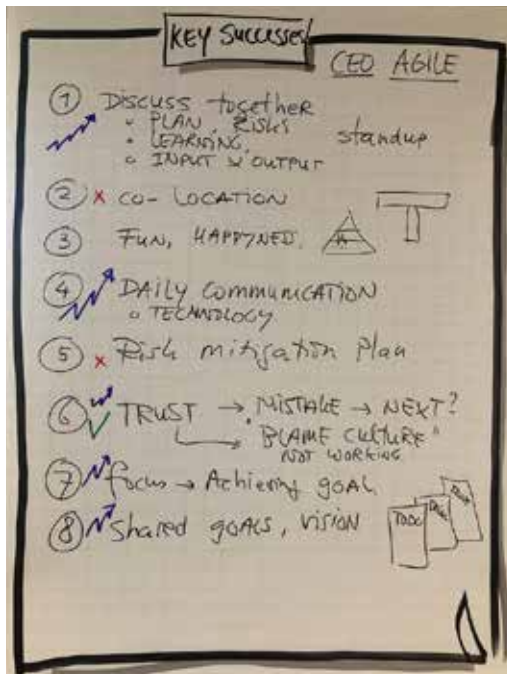 KEY SUCCESSES
CEO AGILE
1 Discuss together
PLAN, Risks
LEARNING,
INPUT & OUTPUT
standup
2 x CO-LOCATION
3 FUN, HAPPYNED,
4 DAILY COMMUNICATION
TECHNOLOGY
5 x Risk mitigation Plan
6 TRUST → MISTAKE → NEXT?
"BLAME CULTURE"
NOT WORKING
7 focus → Achieving goal
8 Shared goals, vision
TODO